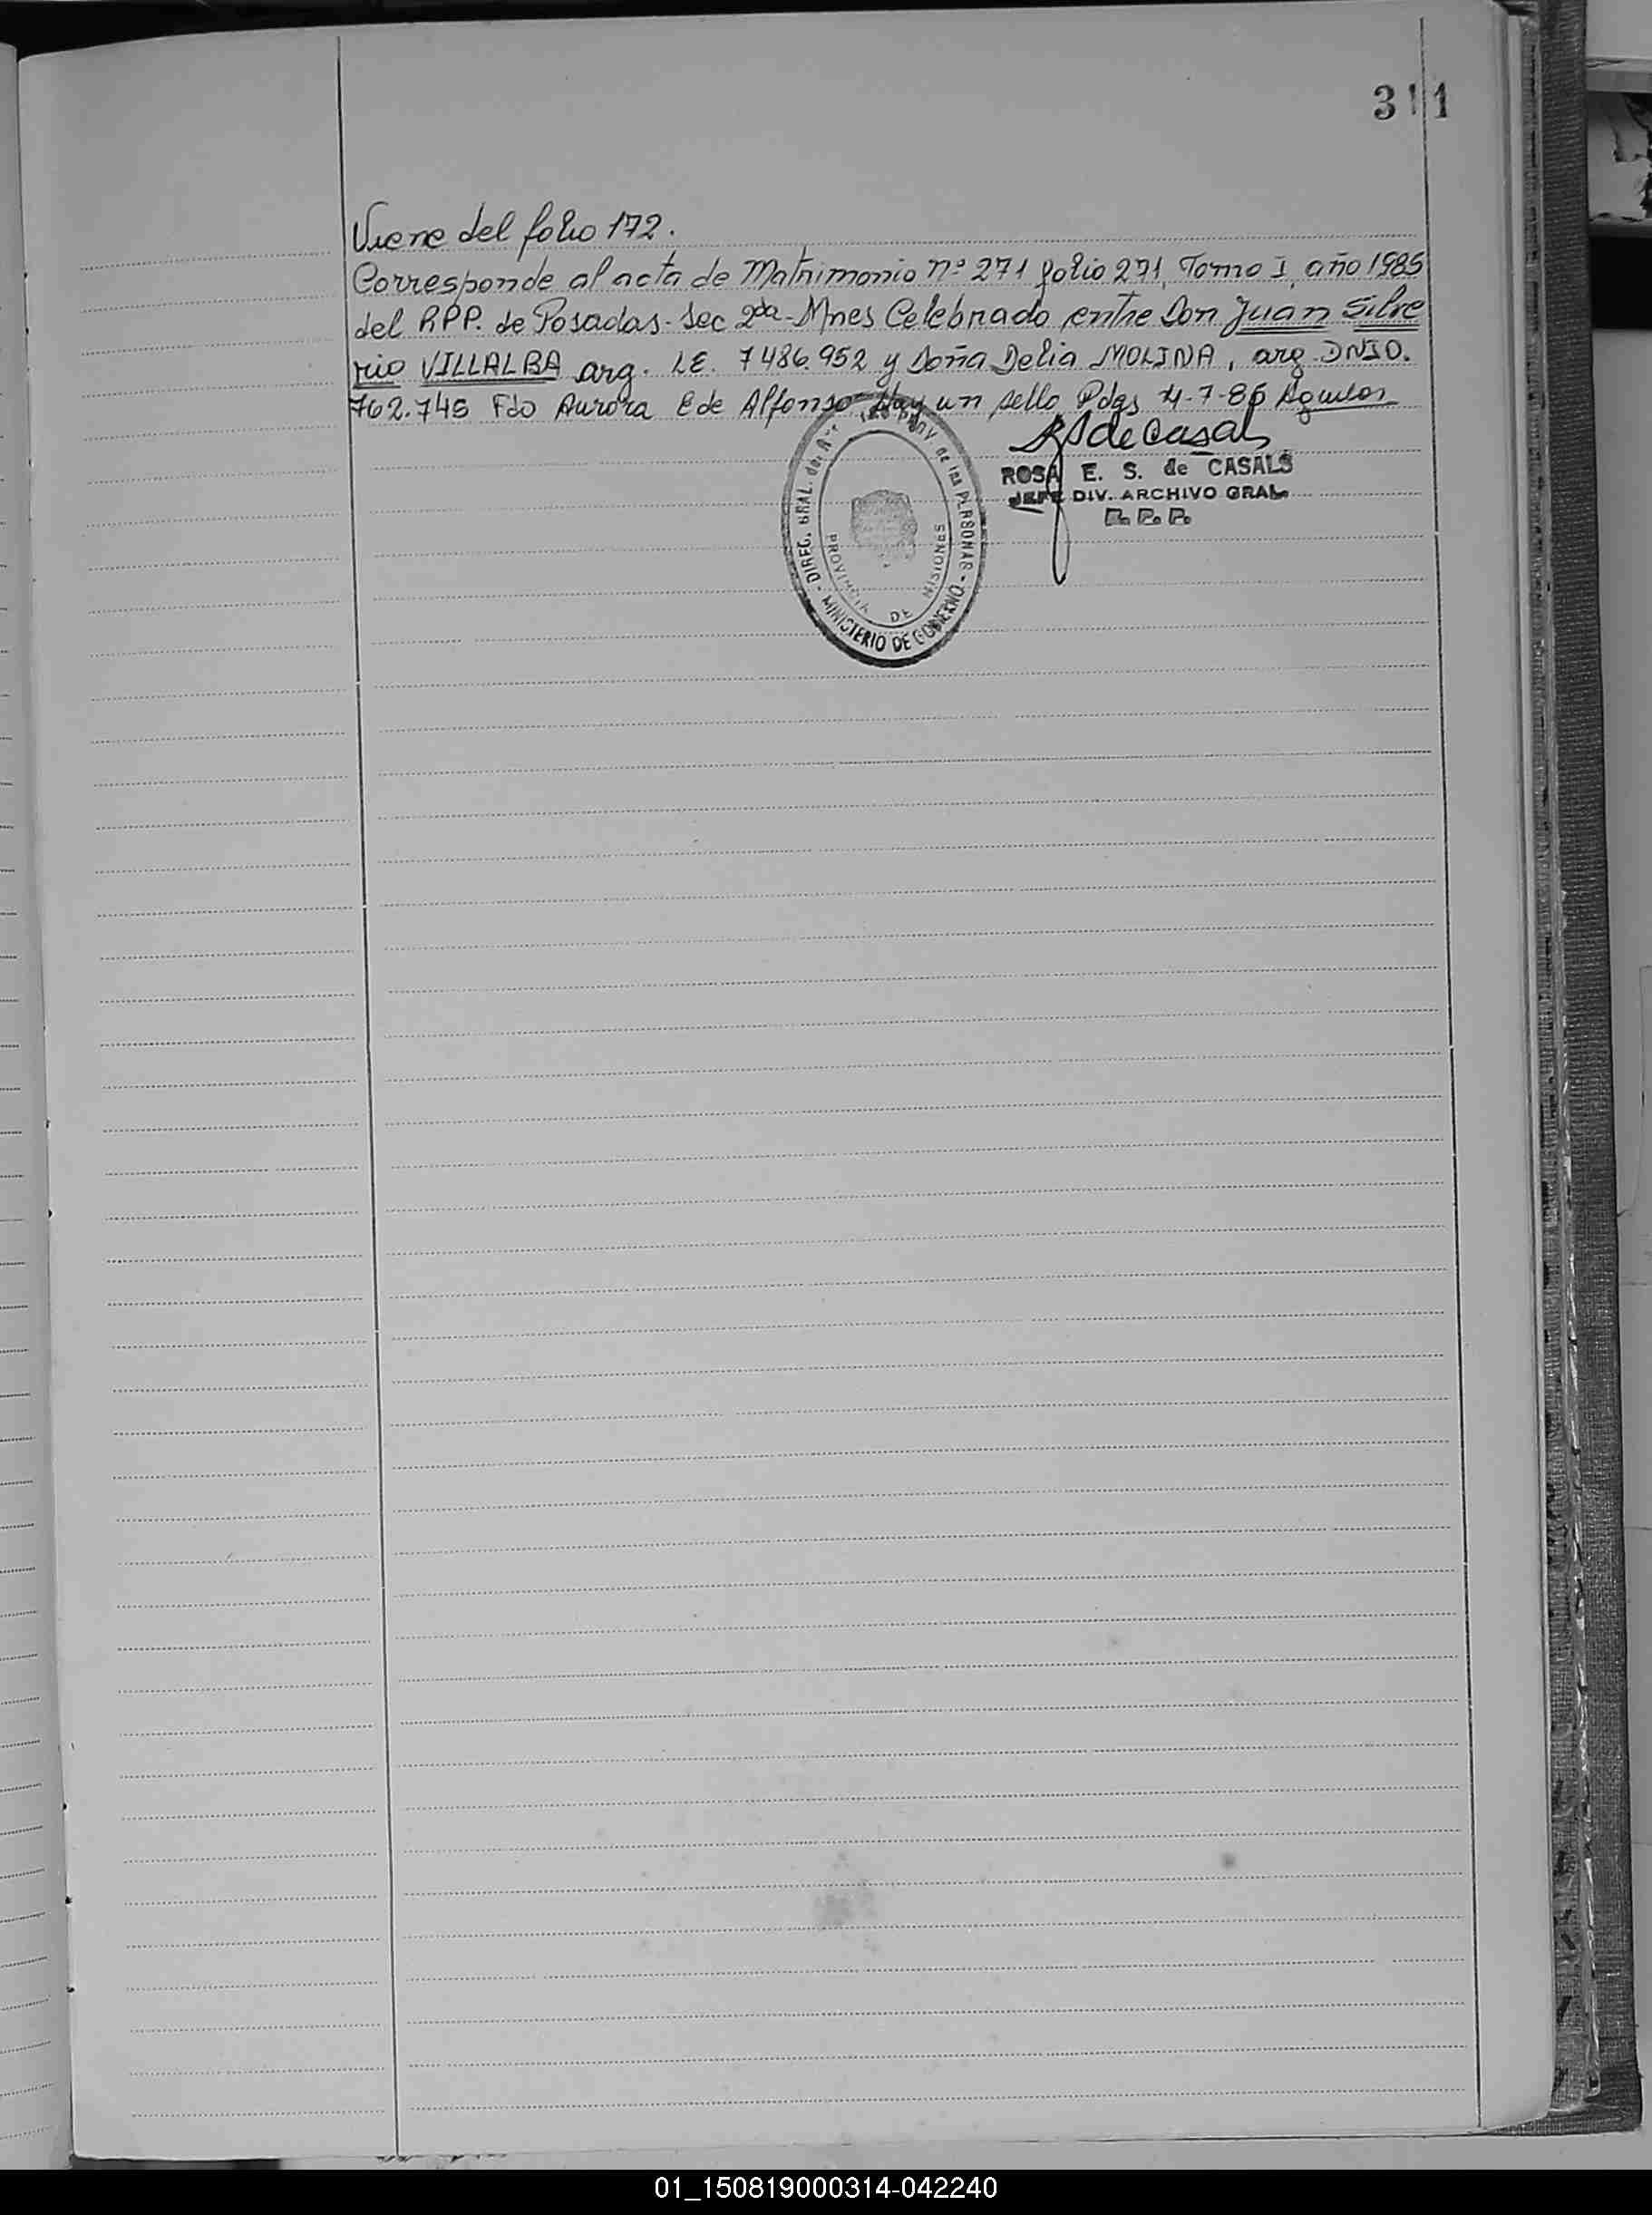 311
Viene del folio 172.
Corresponde al acta de Matrimonio nº 271 folio 271, Tomo I, año 1985
del RPP. de Posadas- Sec 2da- Mnes Celebrado entre Don Juan Silve
rio VILLALBA arg. LE. 7486.952 y Doña Delia MOLINA, arg. DNI0.
762.745 Fdo Aurora E de Alfonso Hay un sello Pdas 4-7-86 Aguilar
RSdeCasals
ROSA E. S. de CASALS
JEFE DIV. ARCHIVO GRAL.
R. P. P.
DIREC. GRAL. del de las PERSONAS - MINISTERIO DE GOBIERNO -
PROVINCIA DE MISIONES
01_150819000314-042240